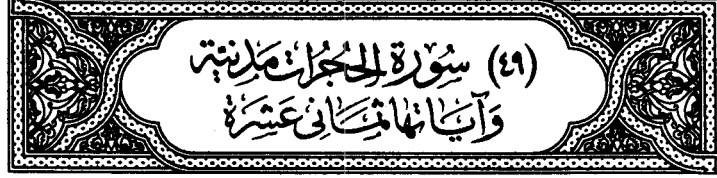 (٤٩) سُوْرَةُ الحُجُرَاتِ مَدَنِيَّةٌ
وَآيَاتُهَا ثَمَانِي عَشَرَةَ